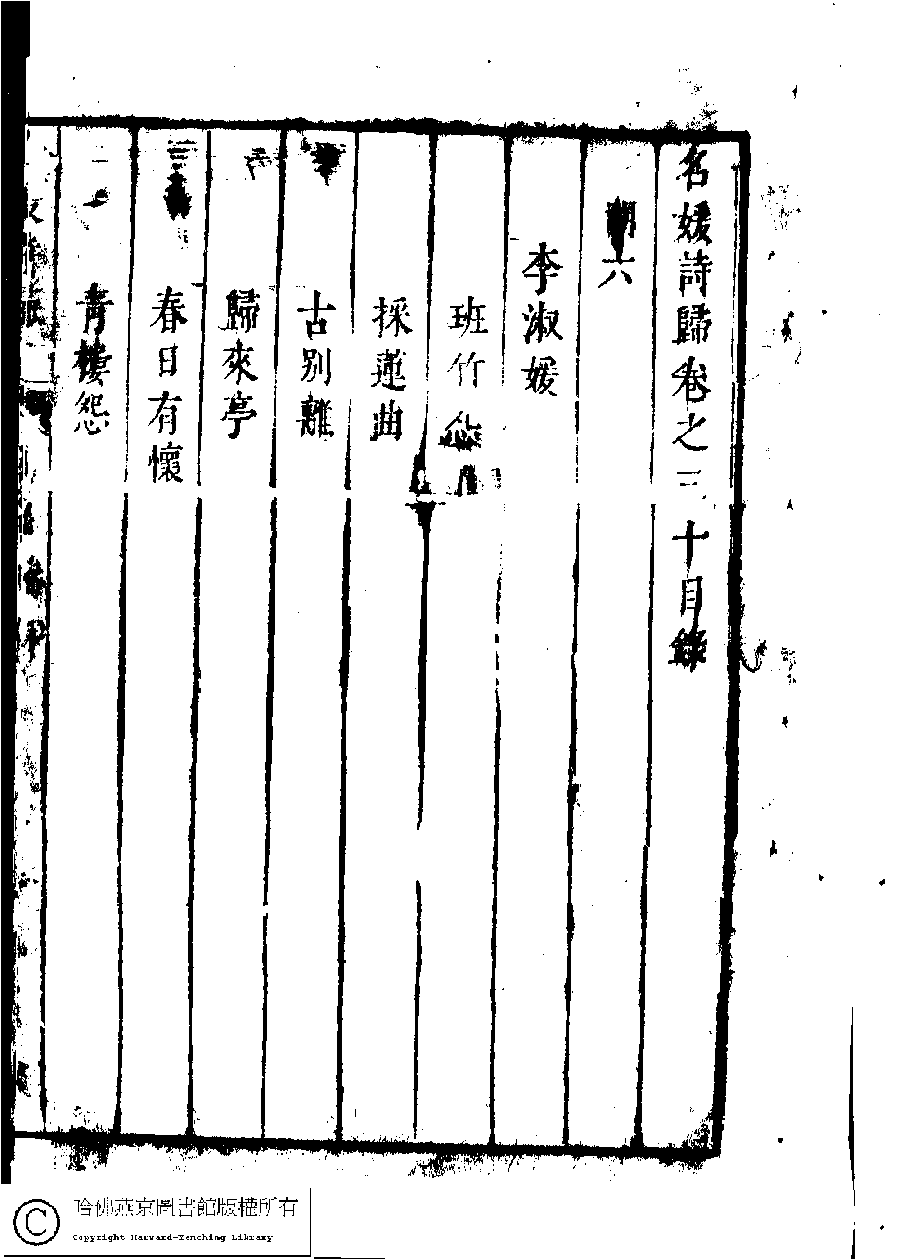 名媛詩歸卷之三十目錄
明六
李淑媛
班竹怨
採蓮曲
古別離
歸來亭
春日有懷
青樓怨
哈佛燕京圖書館版權所有
Copyright Harvard-Yenching Library